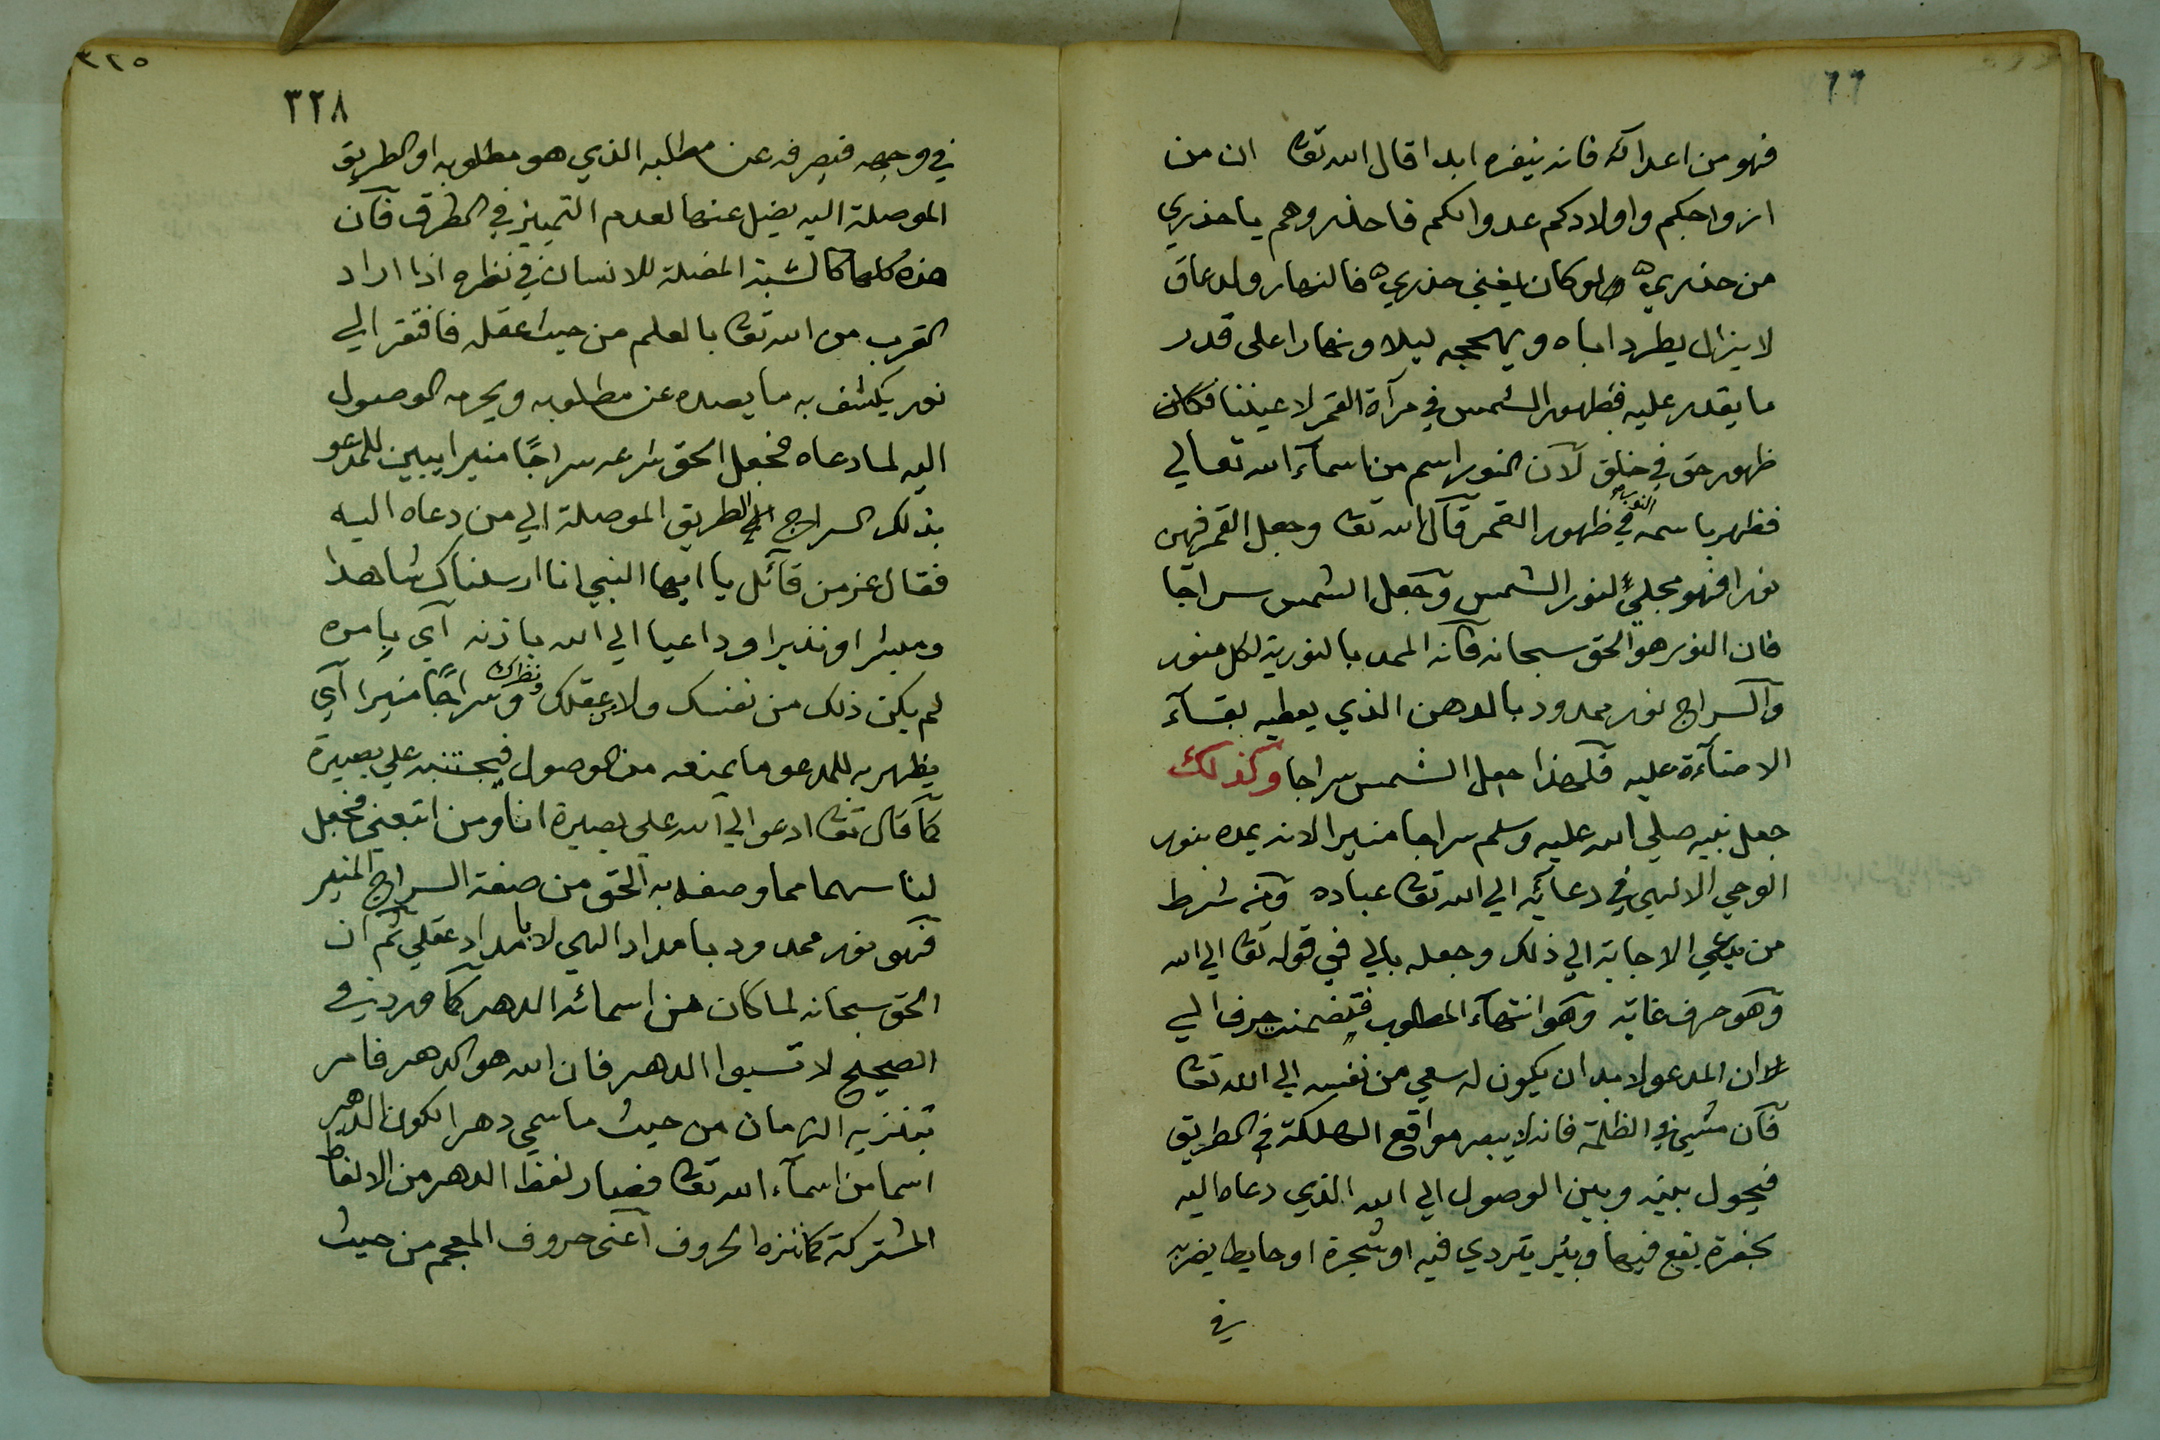 ٦٦
فهو من اعدائه فانه ينفره ابدا قال الله تعا ان من
ازواجكم واولادكم عدوا لكم فاحذروهم يا حذري
من حذري ولو كان يغني حذري فالنهار ولد عاق
لا يزال يطرد اباه ويهججه ليلا ونهارا على قدر
ما يقدر عليه فظهور الشمس في مرآة القمر لاعيننا فكان
ظهور حق في خلق لان النور اسم من اسمآء الله تعالي
فظهر باسمه النور في ظهور القمر قال الله تعا وجعل القمر فيهن
نورا فهو مجلي لنور الشمس وجعل الشمس سراجا
فان النور هو الحق سبحانه فانه الممد بالنورية لكل منور
والسراج نور ممدود بالدهن الذي يعطيه بقآء
الاضآءة عليه فلهذا جعل الشمس سراجا وكذلك
جعل نبيه صلي الله عليه وسلم سراجا منيرا لانه يمده بنور
الوحي الالهي في دعآئه الي الله تعا عباده وانه شرط
من يدعي الاجابة الي ذلك وجعله بالي في قوله تعا الي الله
وهو حرف غاية وهو انتهآء المطلوب فتضمنت حرف الي
لان المدعو لا بد ان يكون له سعي من نفسه الي الله تعا
فان مشي في الظلمة فانه لا يبصر مواقع الهلكة في الطريق
فيحول بينه وبين الوصول الي الله الذي دعاه اليه
بحفرة يقع فيها وبئر يتردي فيه او شجرة او حايط يضربه
في
٣٢٥
٣٢٨
في وجهه فيصرفه عن مطلبه الذي هو مطلوبه او الطريق
الموصلة اليه يضل عنها لعدم التمييز في الطرق فان
هذه كلها كالشبة المضلة للانسان في نظره اذا اراد
القرب من الله تعا بالعلم من حيث عقله فافتقر الي
نور يكشف به ما يصده عن مطلوبه ويحرمه الوصول
اليه لما دعاه فجعل الحق شرعه سراجا منيرا يبين للمدعو
بذلك السراج الطريق الموصلة الي من دعاه اليه
فقال عز من قآئل يا ايها النبي انا ارسلناك شاهدا
ومبشرا ونذيرا وداعيا الي الله باذنه اي بامره
لم يكن ذلك من نفسك ولا عقلك ونظرك وسراجا منيرا اي
يظهر به للمدعو ما يمنعه من الوصول فيجتنبه علي بصيرة
كما قال تعا ادعو الي الله علي بصيرة انا ومن اتبعني فجعل
لنا سهما مما وصفه به الحق من صفة السراج المنير
فهو نور ممدود بامداد الهي لا بامداد عقلي ثم ان
الحق سبحانه لما كان من اسمائه الدهر كما ورد في
الصحيح لا تسبوا الدهر فان الله هو الدهر فامر
بتنزيه الزمان من حيث ما سمي دهرا لكون الدهر
اسما من اسمآء الله تعا فصار لفظ الدهر من الالفاظ
المشتركة كما تنزه الحروف اعني حروف المعجم من حيث